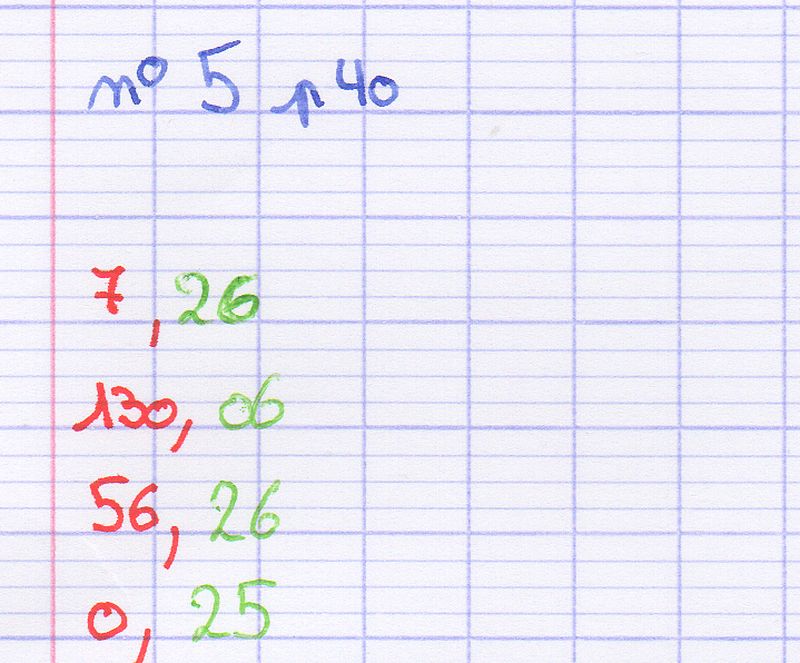 n° 5 p 40
7, 26
130, 06
56, 26
0, 25